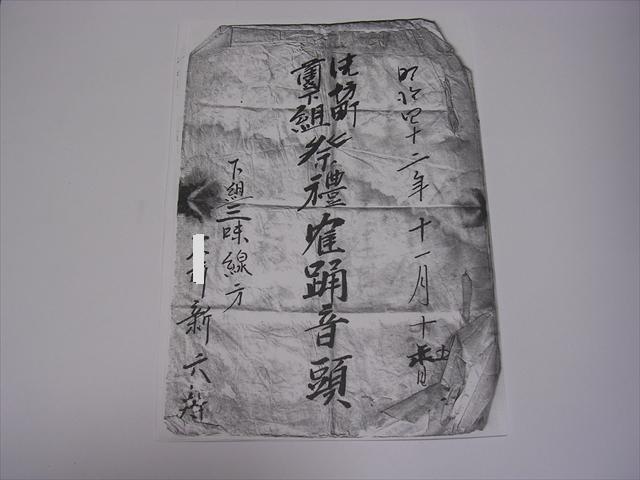 明治四十二年十一月十
町
舊下組 祭禮雀踊音頭
下組三味線方
新六